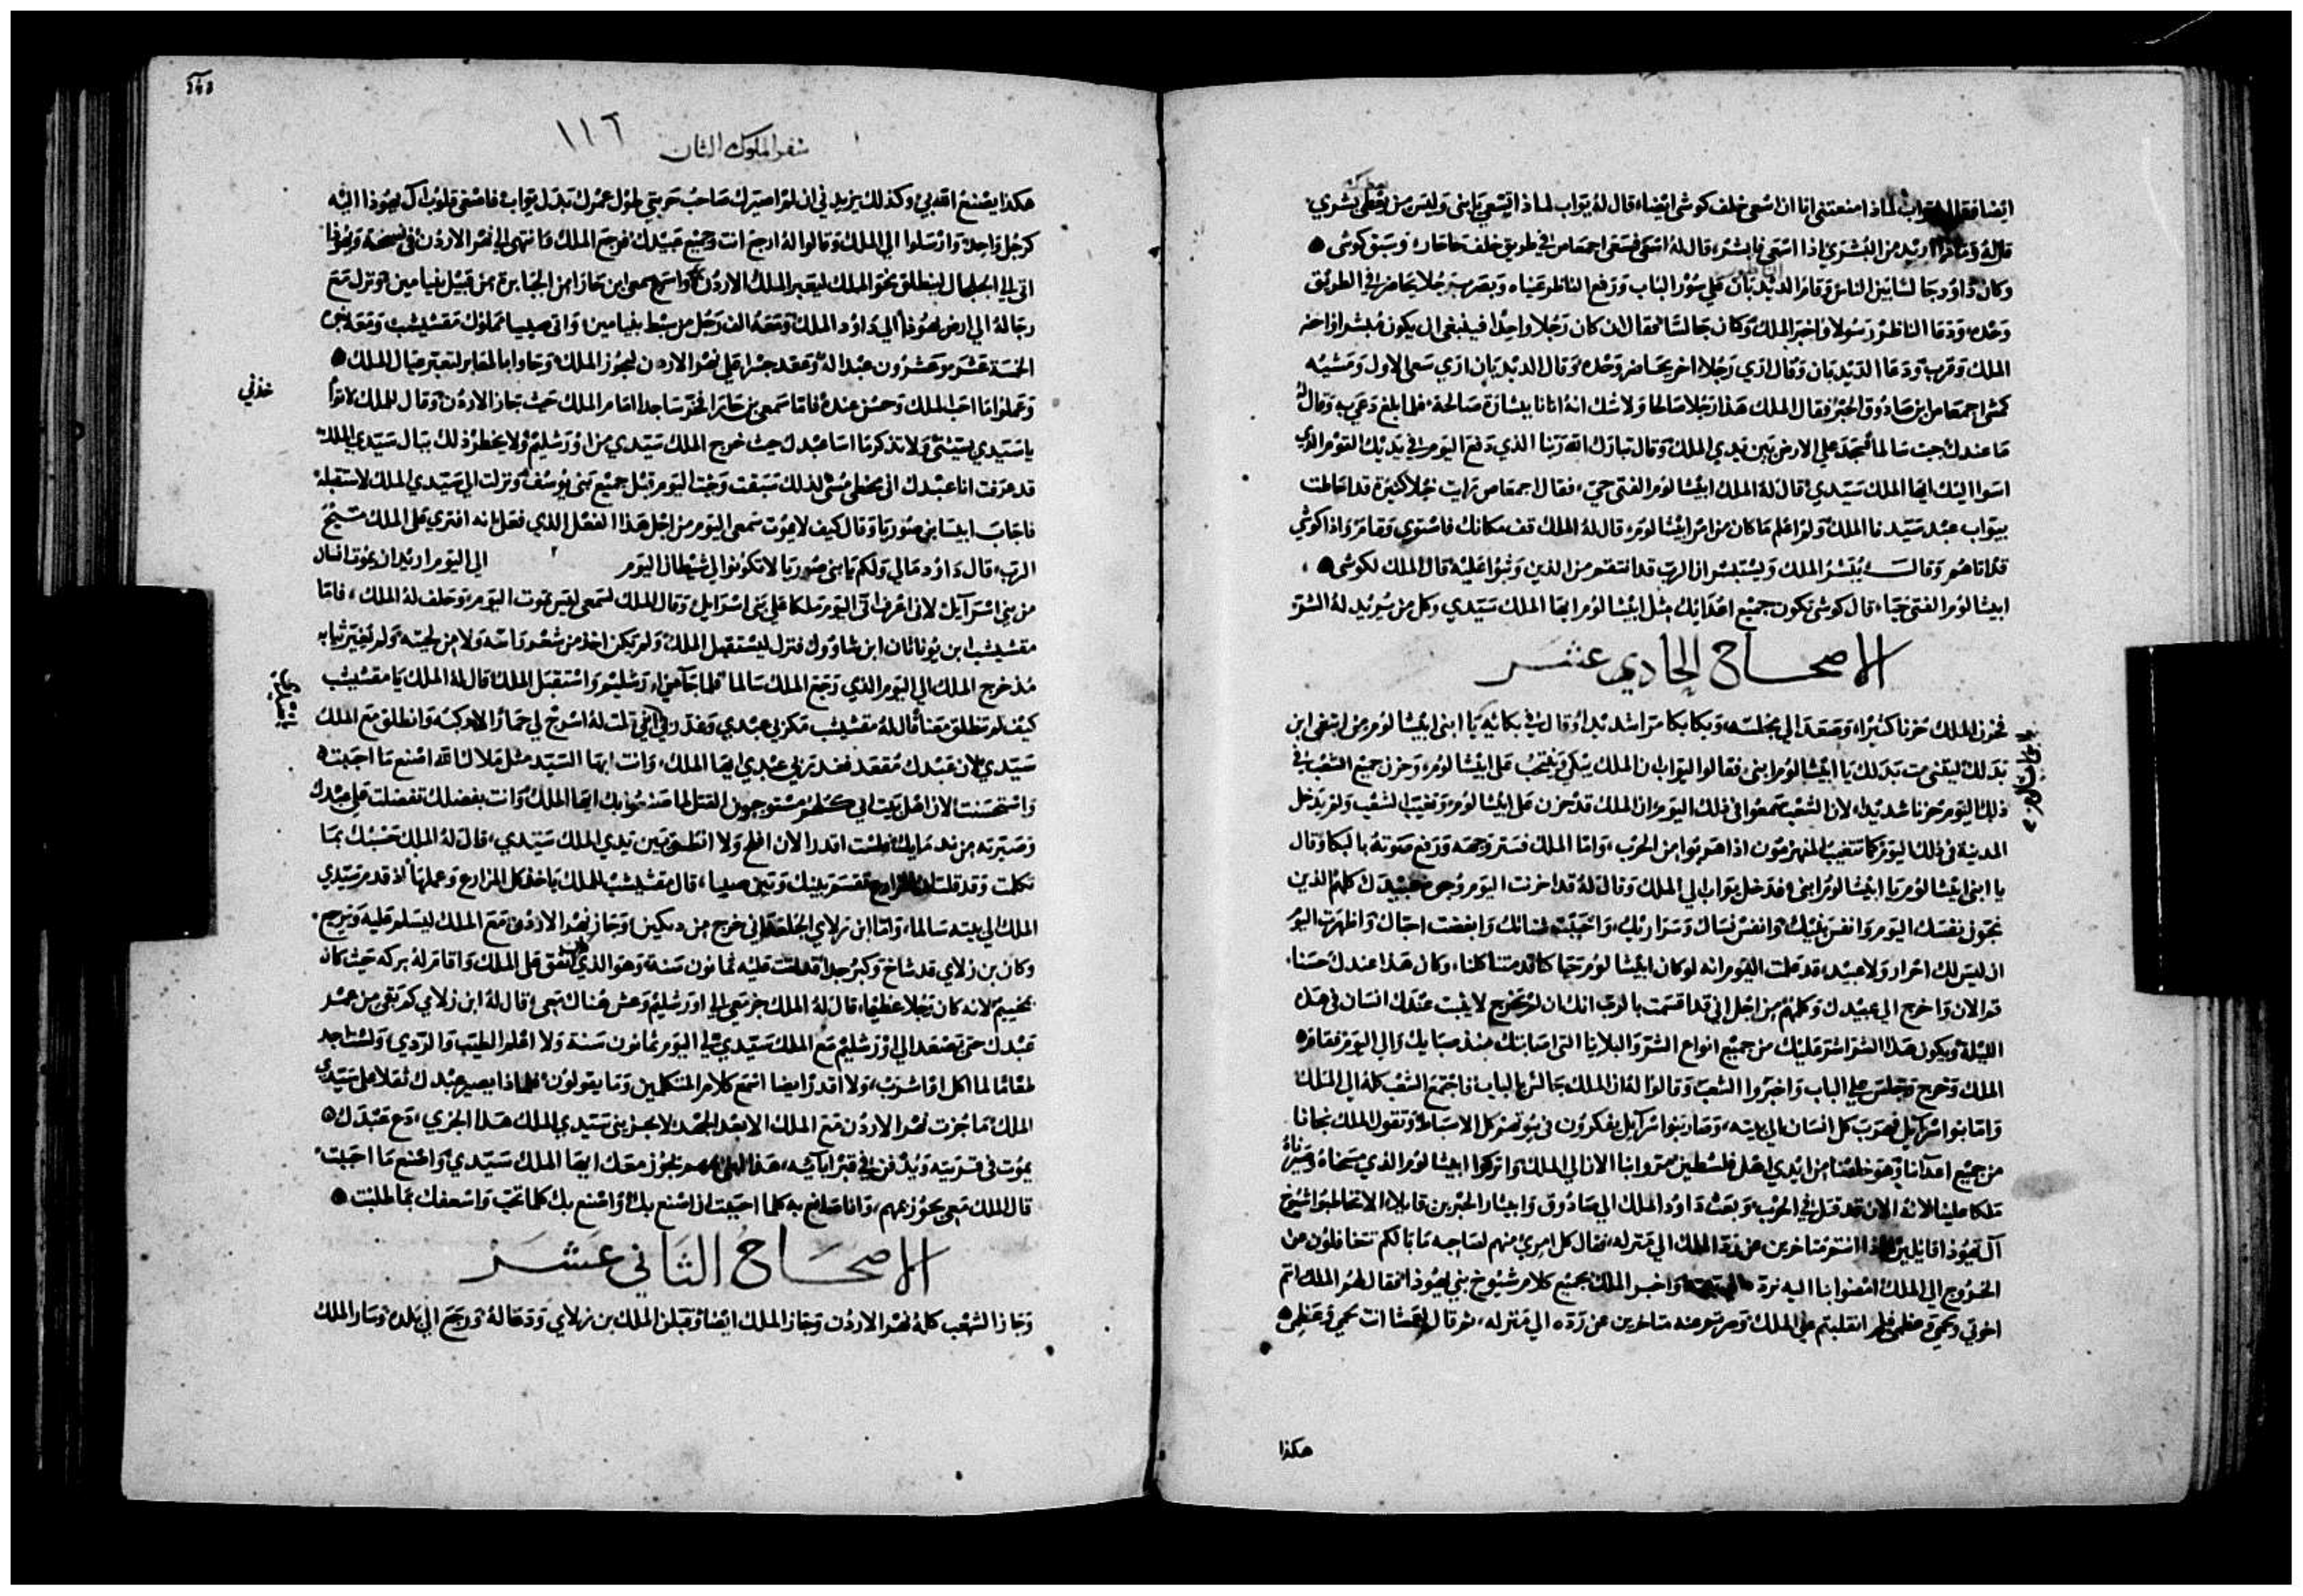 ايضا فقال له يواب لماذا منعتنى انا ان اسعى خلف كوشى ايضا، قال له يواب لماذا تسعى يا بنى وليس من يعطى بشري
قال له وماذا اريد من البشري اذا اسعى فابشر، قال له اسعى فسعى اجمعاص في طريق خلف وسبق كوشى
وكان داود جالسا بين الناس وقام الديدبان علي سور الباب ورفع الناظر عيناه وبصر برجلا يحاضر في الطريق
وحده، ودعا الناظر رسولا واخبر الملك وكان جالسا فقال ان كان رجلا واحدا فينبغي ان يكون مبشرا
الملك وقرب ودعا الديدبان وقال اري رجلا اخر يحاضر وحده وقال الديدبان اري سعى الاول ومشيه
كمشي اجمعاص ابن صادوق الحبر فقال الملك هذا رجلا صالحا ولا شك انه اتانا ببشارة صالحة فلما بلغ دعي به وقال له
ما عندك جيت سالما فسجد علي الارض بين يدي الملك وقال تبارك الله ربنا الذي دفع اليوم في يديك القوم الذي
اسوا اليك ايها الملك سيدي قال له الملك ابيشالوم الفتى حي، فقال اجمعاص رايت خيلا كثيرة قد احاطت
بيواب عبد سيدنا الملك ولم اعلم ما كان من امر ابيشالوم، قال له الملك قف مكانك فاستوي وقام واذا كوشي
قد اتاهم وقال يبشر الملك ويستبشر ان الرب قد انتقم من الذين وثبوا عليه قال الملك لكوشى
ابيشالوم الفتى حيا، قال كوشى تكون جميع اعدائك مثل ابيشالوم ايها الملك سيدي وكل من يريد له الشر
الاصحاح الحادي عشر
فحزن الملك حزنا كثيرا، وصعد الي مجلسه، وبكا بكا مرا شديدا وقال في بكائه يا ابنى ابيشالوم من ابن
بدلك ليتنى مت بدلك يا ابيشالوم ابنى فقالوا ليواب ان الملك يبكي وينتحب على ابيشالوم، وحزن جميع الشعب في
ذلك اليوم حزنا شديدا، لان الشعب سمعوا فى ذلك اليوم ان الملك قد حزن على ابيشالوم وتغيب الشعب ولم يدخل
المدينة فى ذلك اليوم كما تتغيب المنهزمون اذا هربوا من الحرب، واما الملك فستر وجهه ورفع صوته بالبكا وقال
يا ابنى ابيشالوم يا ابيشالوم ابنى، فدخل يواب الي الملك وقال له قد اخزيت اليوم وجوه عبيدك كلهم الذين
نجون نفسك اليوم وانفس بنيك وانفس نساك وسراريك، واحببت شانك وابغضت احباك واظهرت اليوم
ان ليس لك احرار ولا عبيد، قد علمت اليوم انه لو كان ابيشالوم حيا كنا قد متنا كلنا، وكان هذا عندك حسنا،
قم الان واخرج الي عبيدك وكلمهم من اجل اني قد اقسمت بالرب انك ان لم تخرج لا يلبث عندك انسان فى هذه
الليلة ويكون هذا الشر اشر عليك من جميع انواع الشر والبلايا التى اصابتك منذ صبايك والي اليوم فقام
الملك وخرج وجلس علي الباب واخبروا الشعب وقالوا له ان الملك جالس بالباب فاجتمع الشعب كله الي الملك
واما بنوا اسرائيل فهرب كل انسان الي بيته، وصار بنوا اسرائيل يفكرون في بيوتهم كل الاسباط وتقول الملك نجانا
من جميع اعدائنا وهو خلصنا من ايدي اهل فلسطين مروا بنا الان الي الملك واتركوا ابيشالوم الذي مسحناه وصيرناه
ملكا علينا لانه الان قد قتل في الحرب، وبعث داود الملك الي صادوق وابيثار الحبرين قايلا، الا تخاطبوا شيوخ
آل يهوذا قايلين لماذا انتم متاخرين عن رد الملك الي منزله، فقال كل امري منهم لصاحبه ما بالكم تتغافلون عن
الخروج الي الملك امضوا بنا اليه نرده الي بيته، واخبر الملك بجميع كلام شيوخ بني يهوذا فقال لهم الملك انتم
اخوتي ولحمي وعظمي فلم انقلبتم علي الملك وصرتم عنه متاخرين عن رده الي منزله، ثم قال لعمشا انت لحمي وعظمي
هكذا
سفر الملوك الثان
١١٦
هكذا يصنع الله بي وكذلك يزيد في ان لم اصيرك صاحب حربتي طول عمرك بدل يواب، فاصغى قلوب آل يهوذا اليه
كرجل واحد، وارسلوا الي الملك وقالوا له ارجع انت وجميع عبيدك فرجع الملك وانتهى الي نهر الاردن
اتى الي الجلجال لينطلق نحو الملك ليعبر الملك الاردن واسرع سمعى ابن حازا من الجبابرة من قبيل بنيامين ونزل مع
رجاله الي ارض يهوذا الي داود الملك ومعه الف رجل من سبط بنيامين، واتى صيبا مملوك مفشيبشب ومعه بنوه
الخمسة عشر وعشرون عبدا له، وعقد جسرا علي نهر الاردن ليجوز الملك، وجاوا بالمعابر لتعبر عيال الملك
وعملوا ما احب الملك وحسن عنده، فاما سمعى بن حازا فخر ساجدا امام الملك حيث جاز الاردن، وقال للملك لا
خذني
يا سيدي بسيتئى ولا تذكر ما اسا عبدك حيث خرج الملك سيدي من اورشليم ولا يخطر ذلك ببال سيدي الملك
قد عرفت انا عبدك انى مسئ لذلك سبقت وجيت اليوم قبل جميع بنى يوسف، ونزلت الي سيدي الملك لاستقبله
فاجاب ابيشا بن صوريا وقال كيف لا يموت سمعى اليوم من اجل هذا الفعل الذي فعل انه افترى على الملك مسيح
الرب، قال داود مالي ولكم يا بنى صوريا لا تكونوا لي شيطانا اليوم الي اليوم اريد ان يموت انسان
من بني اسرآيل لانى اعرف انى اليوم ملكا على بني اسرايل، وقال الملك لسمعى ليس تموت اليوم، وحلف له الملك، فاما
مفشيبشب ابن يوناثان ابن شاوول فنزل ليستقبل الملك ولم يكن اخذ من شعر راسه ولا من لحيته ولم يغير ثيابه
مذ خرج الملك الي اليوم الذي رجع الملك سالما، فلما جا الي اورشليم واستقبل الملك قال له الملك يا مفشيبشب
كيف لم تنطلق معنا، قال له مفشيبشب مكر بي عبدي وغدر بي انى قلت له اسرج لي حمارا لاركبه وانطلق مع الملك
سيدي لان عبدك مقعد فغدر بي عبدي ايها الملك، وانت ايها السيد مثل ملاك الله اصنع ما احببت
واستحسنت لان اهل بيت ابي كلهم مستوجبون القتل لما صنعوا بك ايها الملك، وانت بفضلك تفضلت على عبدك
وصيرته من ندمايك فلست اقدر الان افلح ولا انطق بين يدي الملك سيدي، قال له الملك حسبك بما
تكلمت وقد قلت ان المزارع تقسم بينك وبين صيبا، قال مفشيبشب للملك ياخذ كل المزارع وعملها اذ قدم سيدي
الملك الي بيته سالما، واما ابن زلاي الجلعدانى خرج من دبكين، وجاز نهر الاردن مع الملك ليسلم عليه ويرجع
وكان بن زلاي قد شاخ وكبر جدا قد اتت عليه ثمانون سنة، وهو الذي انفق على الملك واقام له بركه حيث كان
بمخييم لانه كان رجلا عظيما، قال له الملك جز معي الي اورشليم وعش هناك معى، قال له ابن زلاي كم بقى من عمر
عبدك حتى يصعد الي اورشليم مع الملك سيدي، لي اليوم ثمانون سنة ولا اعلم الطيب والردي، ولست اجد
طعاما لما اكل او اشرب، ولا اقدر ايضا اسمع كلام المتكلمين وما يقولون، فلماذا يصير عبدك ثقلا على سيدي
الملك، ما جزت نهر الاردن مع الملك الا بعد الجهد لا يجزينى سيدي الملك هذا الجزي، دع عبدك
يموت فى قريته ويدفن في قبر ابائه، هذا يجوز معك ايها الملك سيدي، واصنع ما احببت
قال الملك معى يجوز بمهم، وانا صانع به كلما احببت ان اصنع بك، واصنع بك كلما تحب واسعفك بما طلبت
الاصحاح الثاني عشر
وجاز الشعب كله نهر الاردن وجاز الملك ايضا وقبل الملك بن زلاي ودعا له ورجع الي بلده، وسار الملك